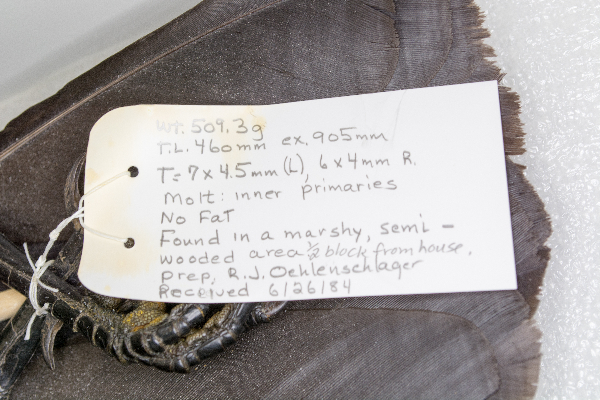 Wt. 509.3g
T.L. 460mm ex. 905mm
T= 7x4.5mm (L), 6x4mm R.
Molt: inner primaries
No Fat
Found in a marshy, semi-
wooded area ½ block from house.
prep. R.J. Oehlenschlager
Received 6/26/84